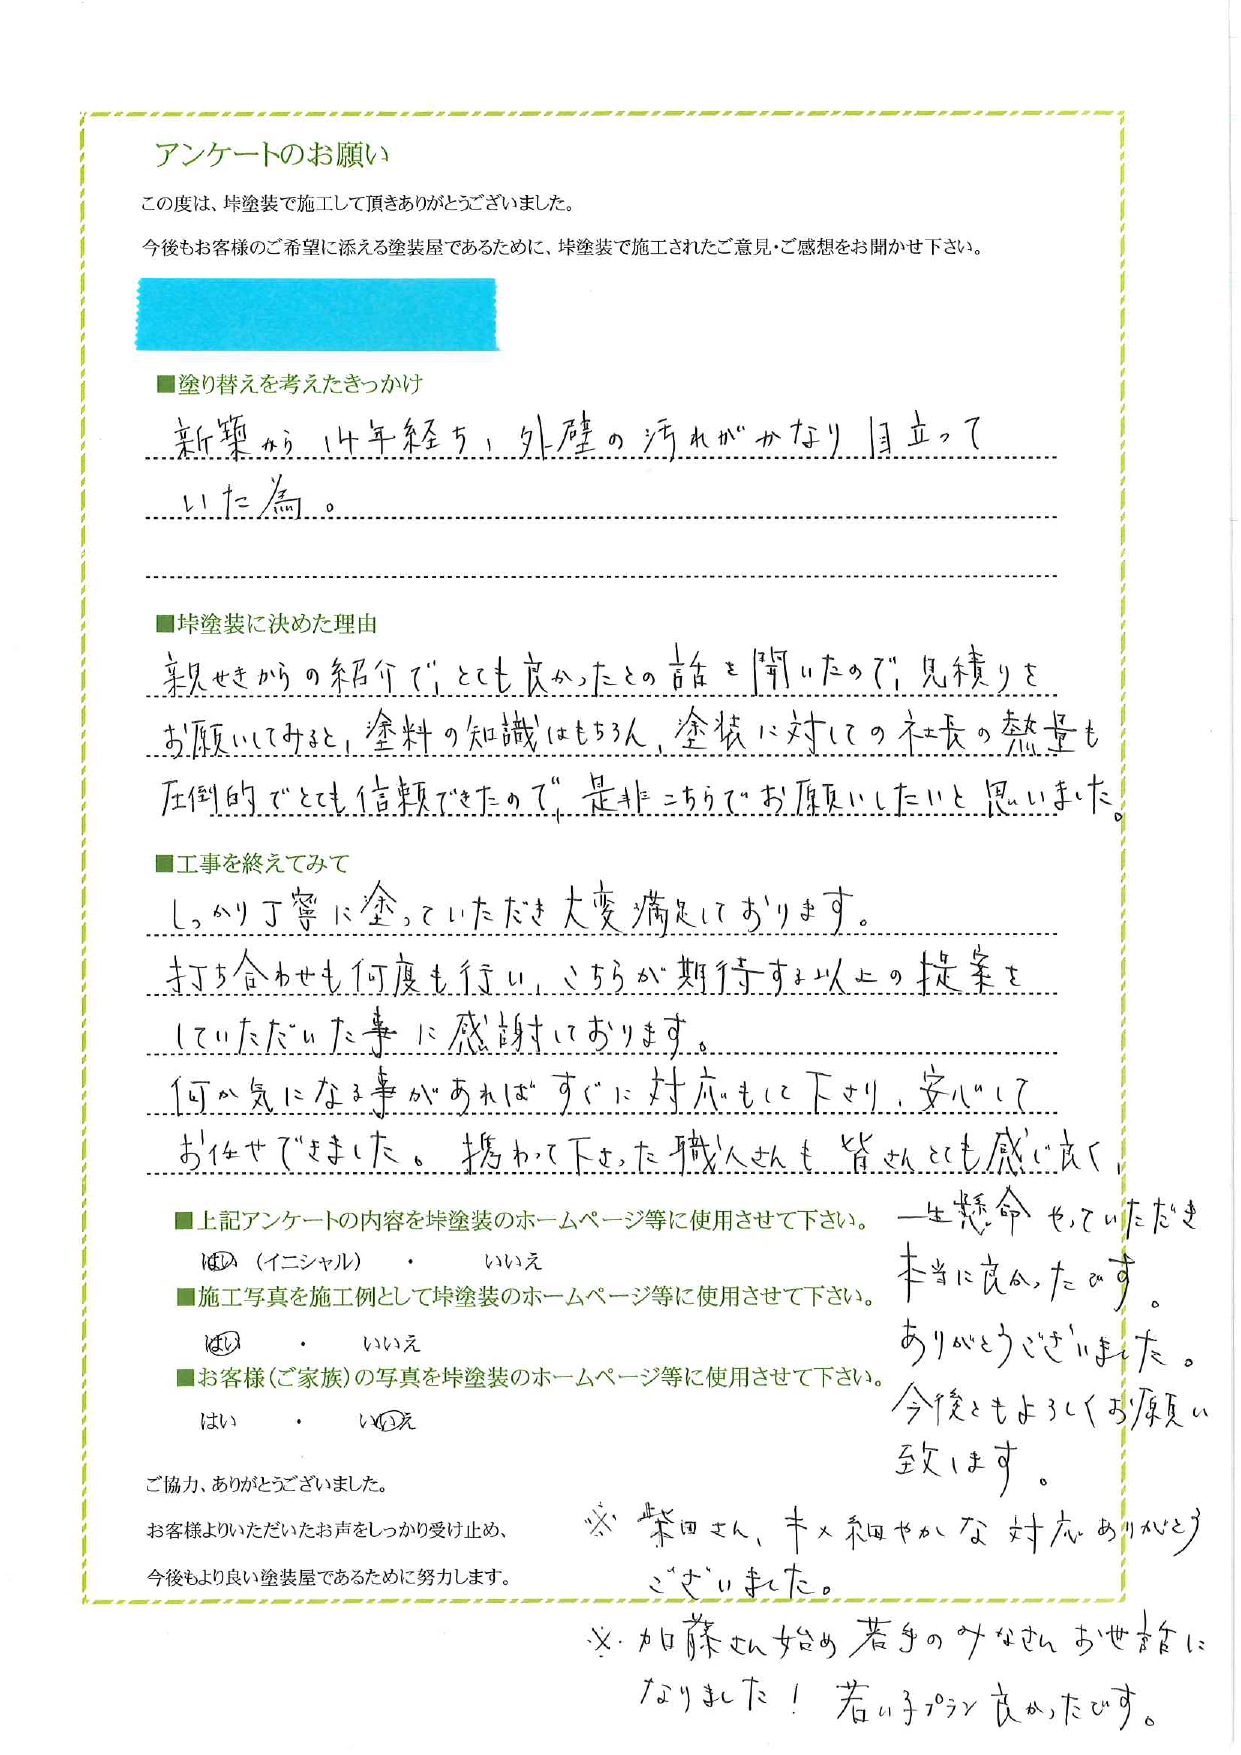 アンケートのお願い
この度は、垰塗装で施工して頂きありがとうございました。
今後もお客様のご希望に添える塗装屋であるために、垰塗装で施工されたご意見・ご感想をお聞かせ下さい。
■塗り替えを考えたきっかけ
新築から14年経ち、外壁の汚れがかなり目立って
いた為。
■垰塗装に決めた理由
親せきからの紹介で、とても良かったとの話を聞いたので、見積りを
お願いしてみると、塗料の知識はもちろん、塗装に対しての社長の熱量も
圧倒的でとても信頼できたので、是非こちらでお願いしたいと思いました。
■工事を終えてみて
しっかり丁寧に塗っていただき大変満足しております。
打ち合わせも何度も行い、こちらが期待する以上の提案を
していただいた事に感謝しております。
何か気になる事があればすぐに対応もして下さり、安心して
お任せできました。携わって下さった職人さんも皆さんとても感じ良く、
一生懸命やっていただき
本当に良かったです。
ありがとうございました。
今後ともよろしくお願い
致します。
■上記アンケートの内容を垰塗装のホームページ等に使用させて下さい。
はい（イニシャル）　・　いいえ
■施工写真を施工例として垰塗装のホームページ等に使用させて下さい。
はい　・　いいえ
■お客様（ご家族）の写真を垰塗装のホームページ等に使用させて下さい。
はい　・　いいえ
ご協力、ありがとうございました。
お客様よりいただいたお声をしっかり受け止め、
今後もより良い塗装屋であるために努力します。
※ 柴田さん、キメ細やかな対応ありがとう
ございました。
※ 加藤さん始め若手のみなさんお世話に
なりました！ 若い子プラン良かったです。